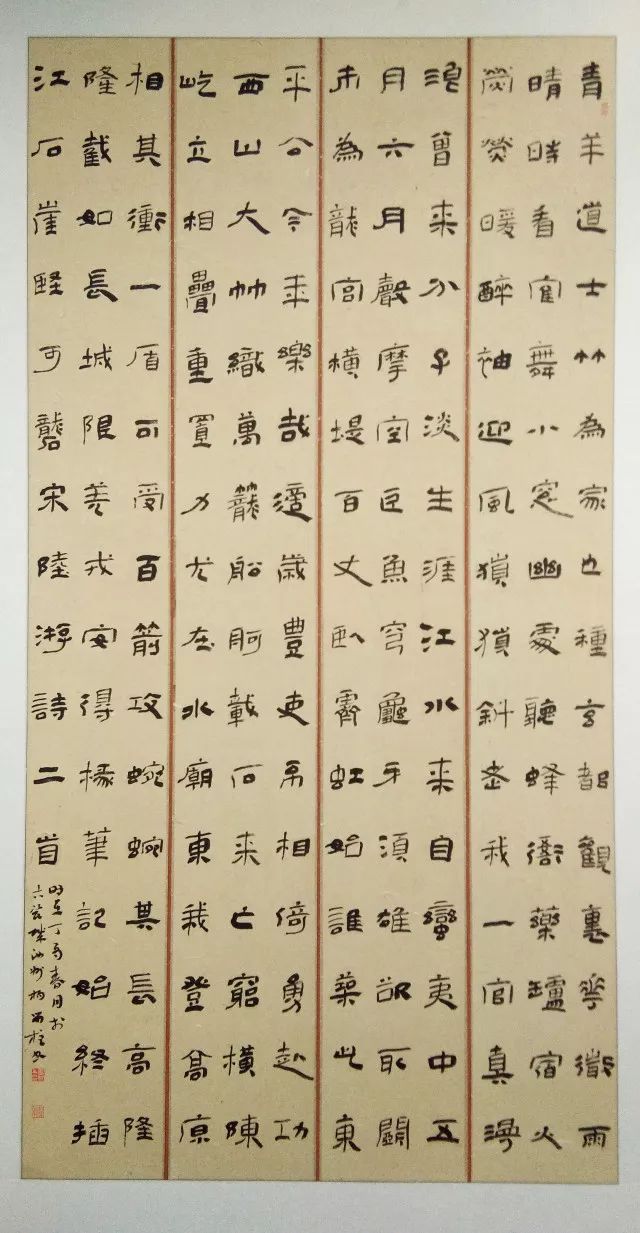 青羊道士竹為家也種玄都觀裏花微雨
晴時看寉舞小窓幽處聽蜂衙藥爐宿火
熒熒暖醉袖迎風獵獵斜老我一官真漫
浪曾來分子淡生涯江水來自蠻夷中五
月六月聲摩空巨魚穹龜牙須雄欲取闤
市為龍宮橫堤百丈臥霽虹始誰築此東
平公今年樂哉適歲豐吏不相倚勇赴功
西山大竹織萬籠船舸載石來亡窮橫陳
屹立相疊重置力尤在水廟東我登高原
相其衝一盾可受百箭攻蜿蜿其長高隆
隆截如長城限羌戎安得椽筆記始終插
江石崖堅可礱宋陸游詩二首
時在丁酉春月於